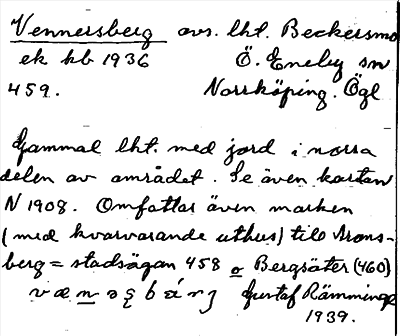 Vennersberg avs. lht. Beckersmo
ek kb 1936 Ö. Eneby sn
459. Norrköping. Ögl
Gammal lht. med jord i norra
delen av området. Se även kartan
N 1908. Omfattar även marken
(med kvarvarande uthus) till Arons-
berg = stadsägan 458 o Bergsäter (460)
Gustaf Rämminge
1939.